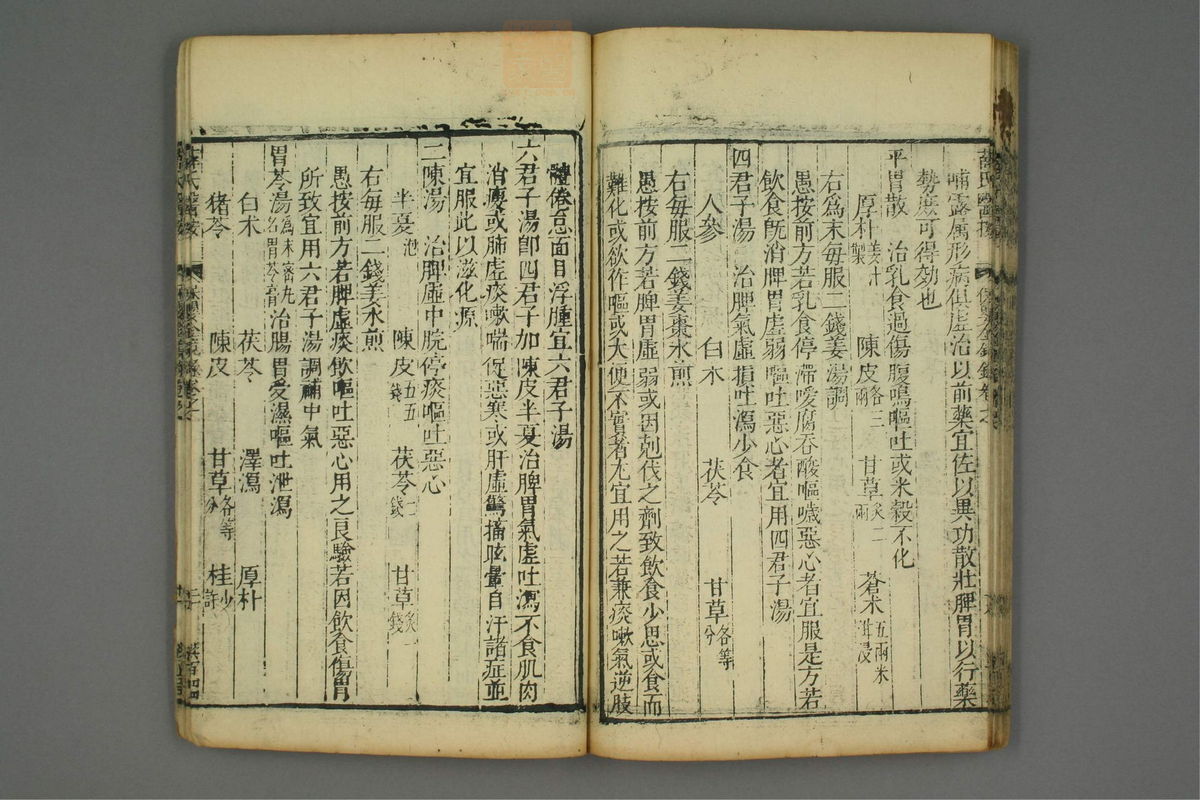 喃露屬形病俱虛治以前藥宜佐以異功散壯脾胃以行藥
勢庶可得効也
平胃散　治乳食過傷腹鳴嘔吐或米穀不化
厚朴姜汁製　陳皮各三兩　甘草炙二兩　蒼朮五兩米泔浸
右爲末每服二錢姜湯調
愚按前方若乳食停滯噯腐吞酸嘔噦惡心者宜服是方若
飲食既消脾胃虛弱嘔吐惡心者宜用四君子湯
四君子湯　治脾氣虛損吐瀉少食
人參　白朮　茯苓　甘草各等分
右每服二錢姜棗水煎
愚按前方若脾胃虛弱或因剋伐之劑致飲食少思或食而
難化或欲作嘔或大便不實者尤宜用之若兼痰嗽氣逆肢
體倦怠面目浮腫宜六君子湯
六君子湯卽四君子加陳皮半夏治脾胃氣虛吐瀉不食肌肉
消瘦或肺虛痰嗽喘促惡寒或肝虛驚搐眩暈自汗諸症並
宜服此以滋化源
二陳湯　治脾虛中脘停痰嘔吐惡心
半夏泡　陳皮五錢　茯苓二錢　甘草炙一錢
右每服二錢姜水煎
愚按前方若脾虛痰飲嘔吐惡心用之良驗若因飲食傷胃
所致宜用六君子湯調補中氣
胃苓湯爲末蜜丸名胃苓膏治腸胃受濕嘔吐泄瀉
白朮　茯苓　澤瀉　厚朴
猪苓　陳皮　甘草各等分　桂少許